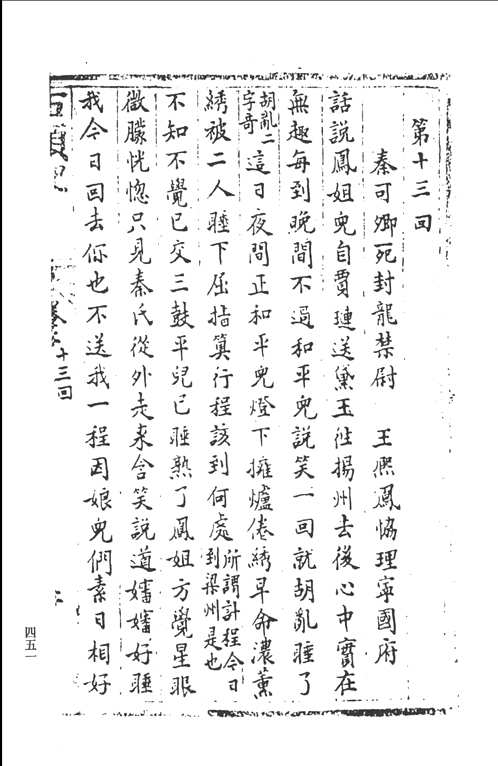 第十三回
秦可卿死封龍禁尉　王熈鳳協理寧國府
話說鳳姐兒自賈璉送黛玉徃揚州去後心中實在
無趣每到晚間不過和平兒說笑一回就胡亂睡了
胡亂二字奇這日夜間正和平兒燈下擁爐倦綉早命濃薰
綉被二人睡下屈指筭行程該到何處所謂計程今日到梁州是也
不知不覺已交三鼓平兒已睡熟了鳳姐方覺星眼
微朦恍惚只見秦氏從外走来含笑說道嬸嬸好睡
我今日回去你也不送我一程因娘兒們素日相好
石頭記
十三回
四五一